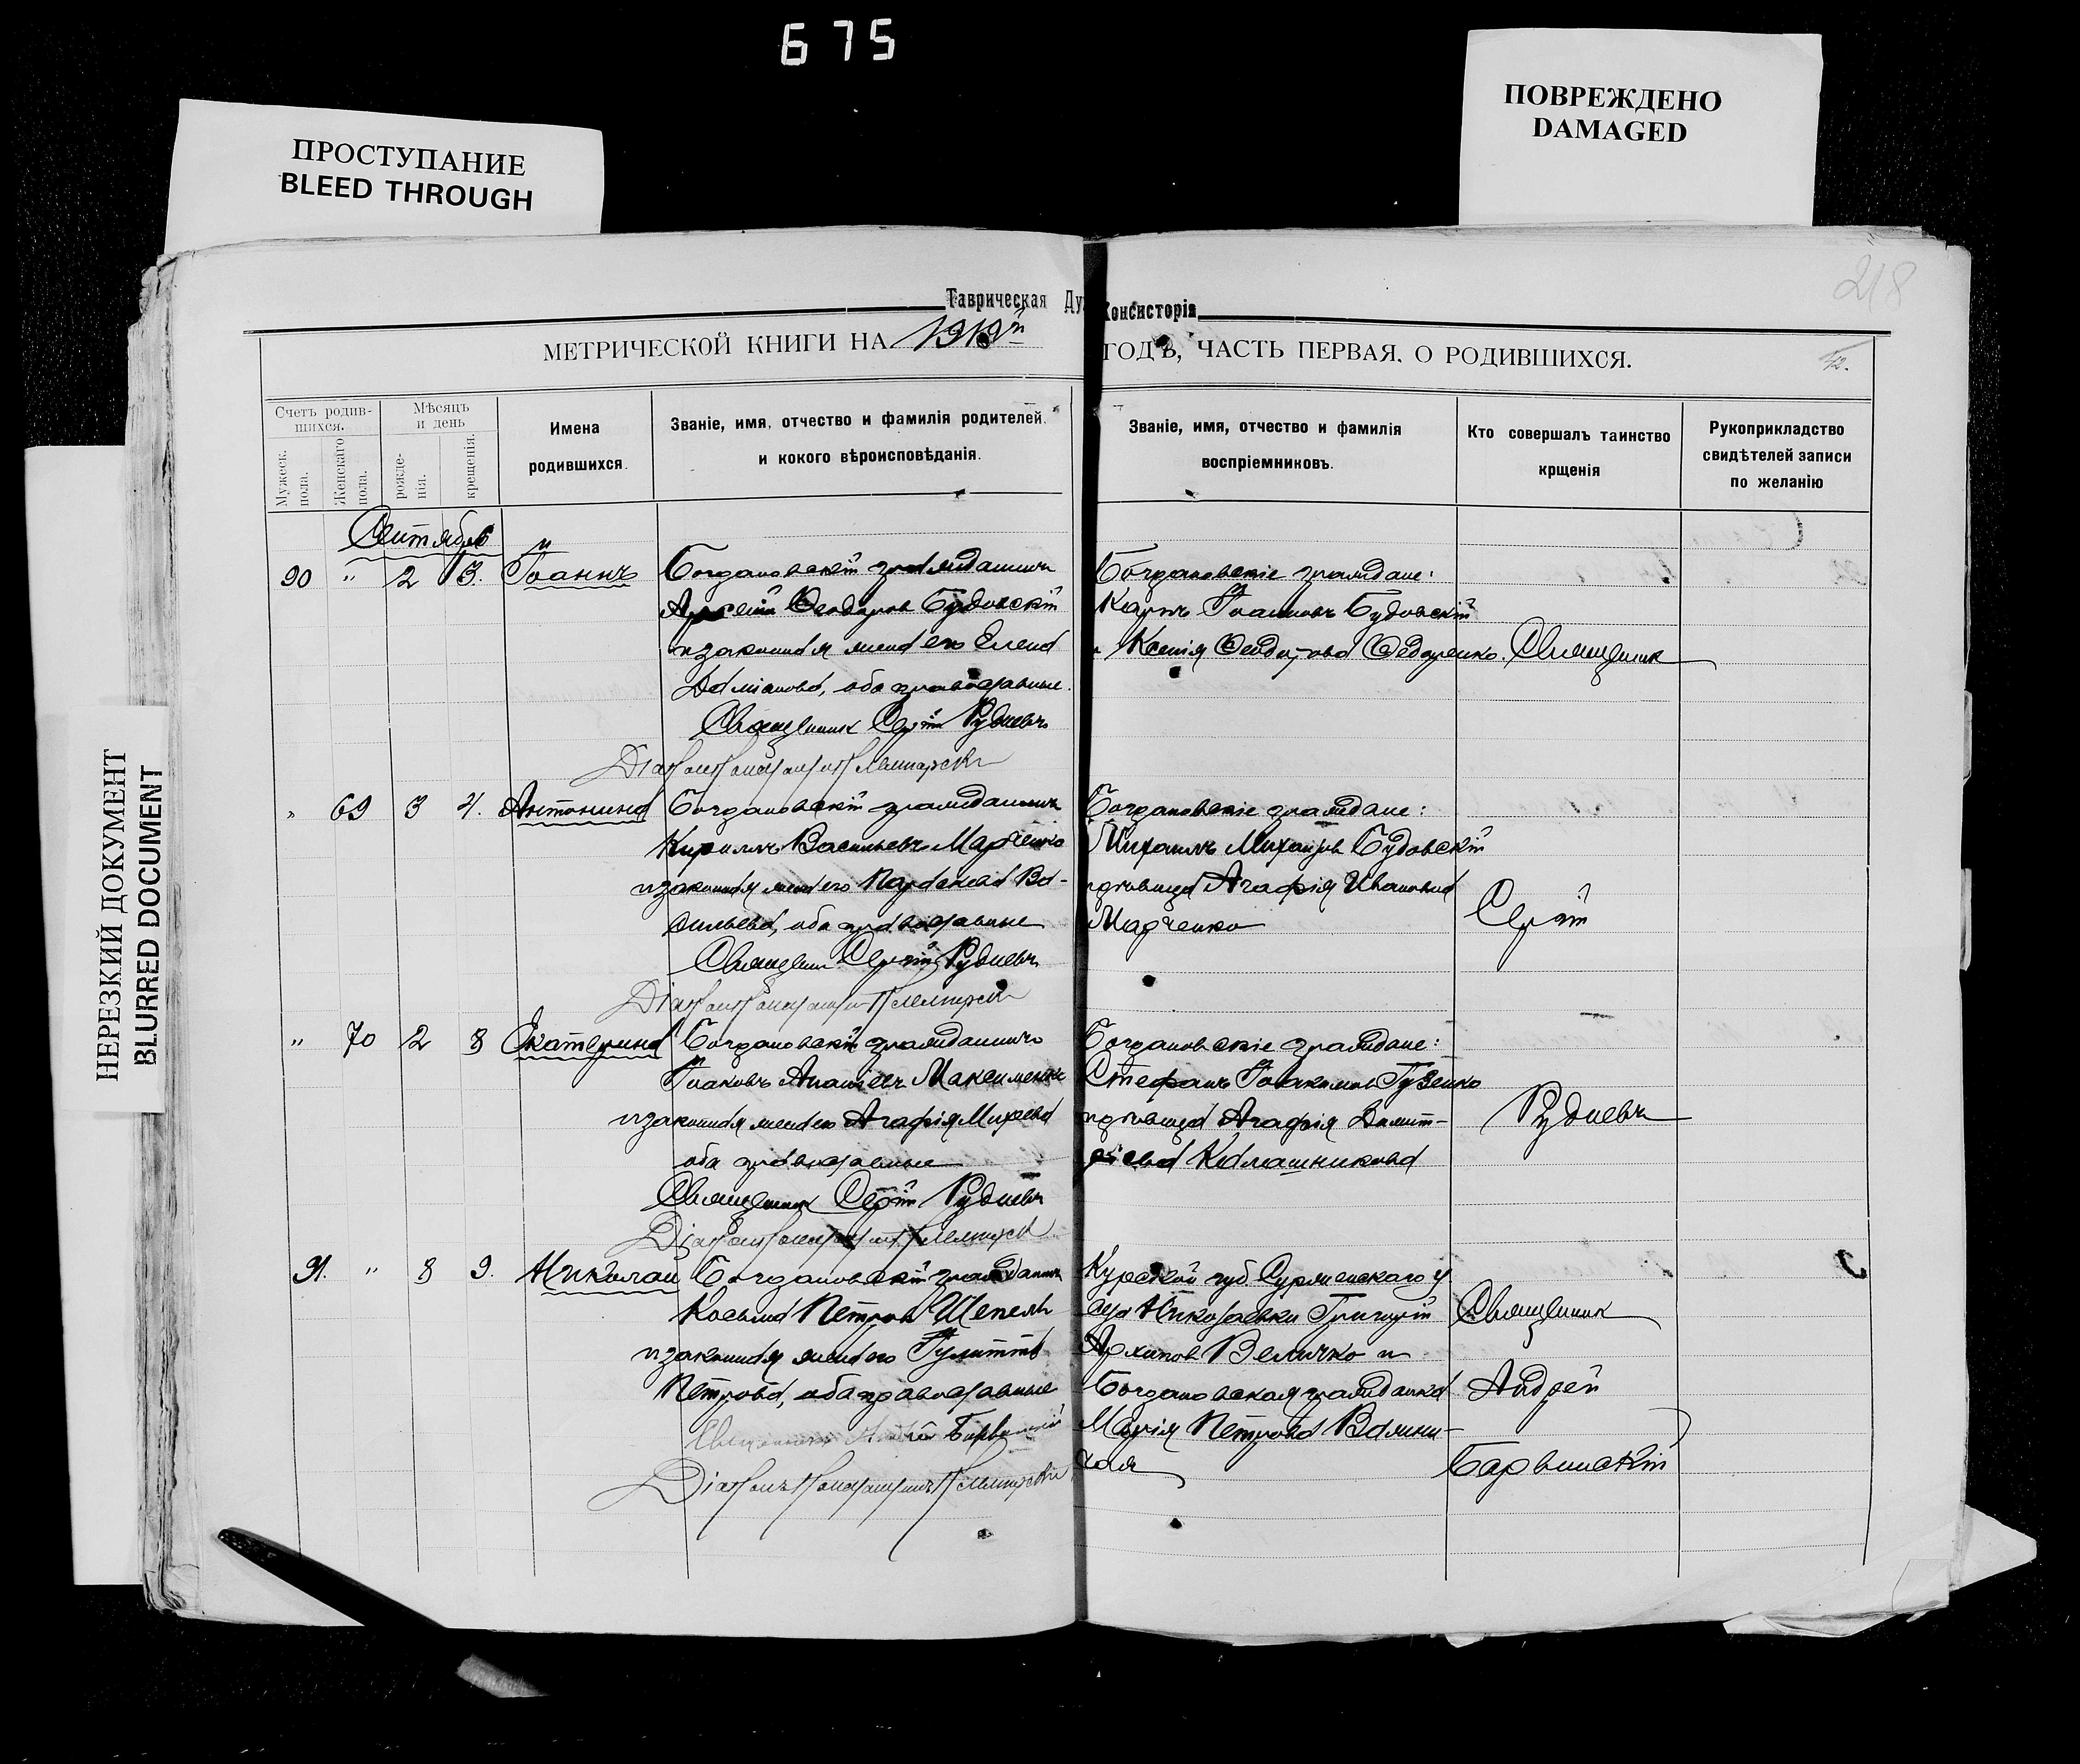 675
ПОВРЕЖДЕНО
DAMAGED
ПРОСТУПАНИЕ
BLEED THROUGH
НЕРЕЗКИЙ ДОКУМЕНТ
BLURRED DOCUMENT
218
Таврическая Ду Консисторія
МЕТРИЧЕСКОЙ КНИГИ НА 1919й ГОДЪ, ЧАСТЬ ПЕРВАЯ. О РОДИВШИХСЯ.
Счетъ родив-
шихся.
Мужеск. пола.
Женскаго пола.
Мѣсяцъ
и день
рожде-
нія.
крещенія.
Имена
родившихся.
Званіе, имя, отчество и фамилія родителей.
и кокого вѣроисповѣданія.
Званіе, имя, отчество и фамилія
воспріемниковъ.
Кто совершалъ таинство
крщенія
Рукоприкладство
свидѣтелей записи
по желанію
Сентябрь
90 " 2 3. Іоаннъ
Богдановскій гражданинъ
Арсеній Ѳеодоровъ Будовскій
и законная жена его Елена
оба православные.
Священникъ Сергій Рудневъ
Богдановскіе граждане:
Карпъ Іоанновъ Будовскій
и Ксенія Ѳеодорова Ѳедоренко.
Священникъ
" 69 3 4. Антонина
Богдановскій гражданинъ
Кириллъ Васильевъ Марченко
и законная жена его Параскева Ва-
сильева, оба православные
Священникъ Сергій Рудневъ
Богдановскіе граждане:
Михаилъ Михайловъ Будовскій
и дѣвица Агафія Иванова
Марченко
Сергій
" 70 2 8 Екатерина
Богдановскій гражданинъ
Іоаковъ Максименко
и законная жена его Агафія Михеева
оба православные
Священникъ Сергій Рудневъ
Богдановскіе граждане:
Стефанъ Іоакимовъ Гузенко
и дѣвица Агафія Димит-
ріева Калашникова
Рудневъ
91. " 8 9. Николай
Богдановскій гражданинъ
Косьма Петровъ Шепель
и законная жена его Іулитта
Петрова, оба православные
Курской губ. у
села Николаевки Григорій
Архиповъ Величко и
Богдановская гражданка
Марія Петрова
Священникъ
Андрей
Барвинскій